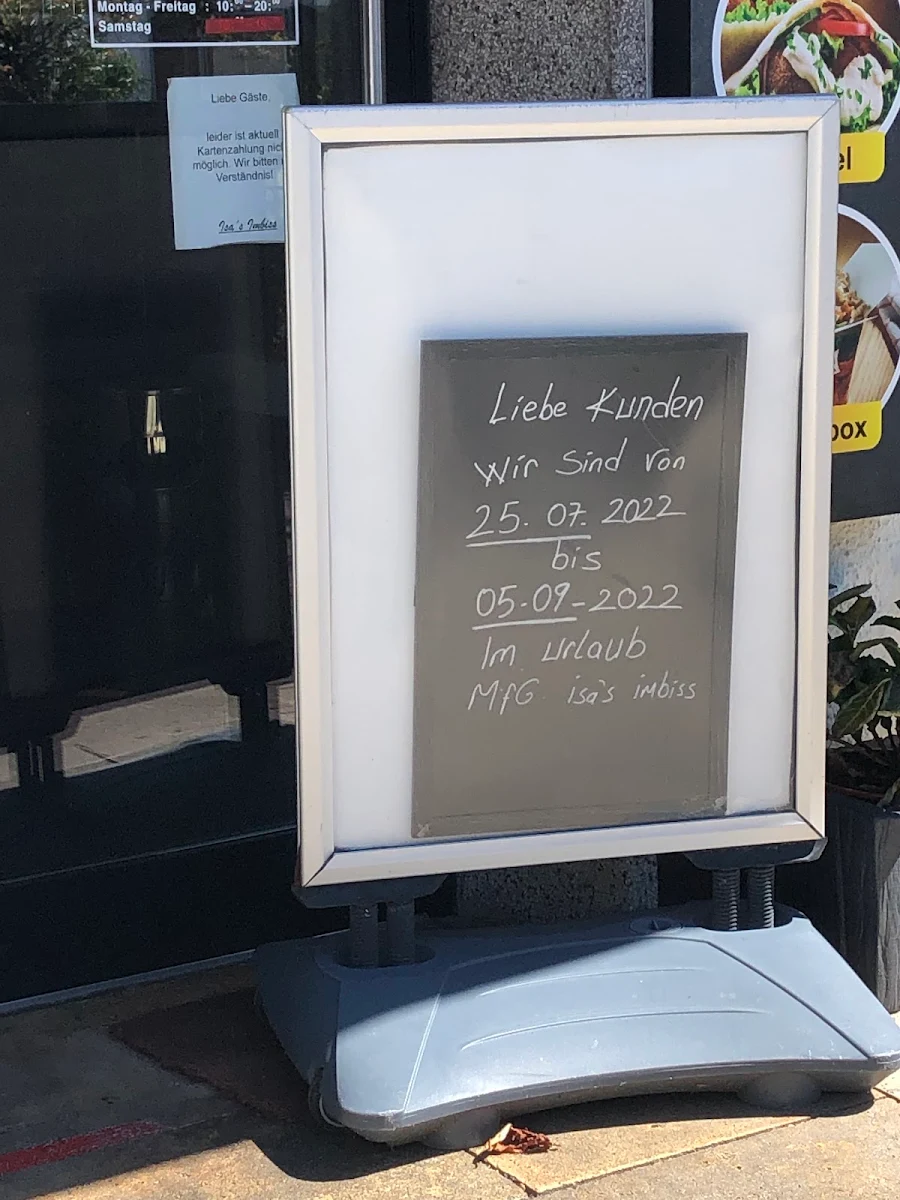 Montag - Freitag : 10:⁰⁰ – 20:⁰⁰
Samstag
Liebe Gäste,
leider ist aktuell
Kartenzahlung
möglich. Wir bitten
Verständnis!
Isa's Imbiss
Liebe Kunden
Wir Sind von
25. 07. 2022
bis
05-09-2022
Im urlaub
MfG isa's imbiss